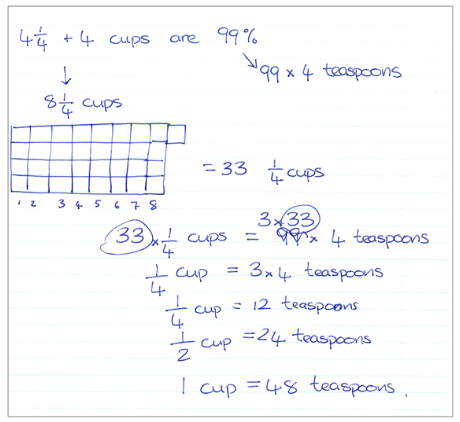 4 1/4 + 4 cups are 99%
99 × 4 teaspoons
8 1/4 cups
= 33 1/4 cups
1 2 3 4 5 6 7 8
3 × 33
33 × 1/4 cups = 99 × 4 teaspoons
1/4 cup = 3 × 4 teaspoons
1/4 cup = 12 teaspoons
1/2 cup = 24 teaspoons
1 cup = 48 teaspoons.